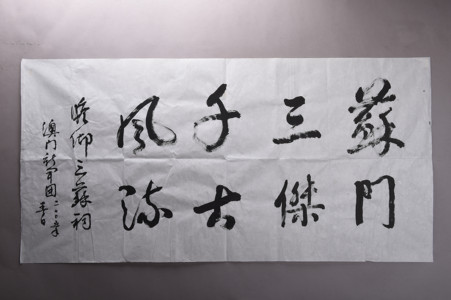 蘇門
三傑
千古
風流
瞻仰三蘇祠
澳门新军团二〇〇年